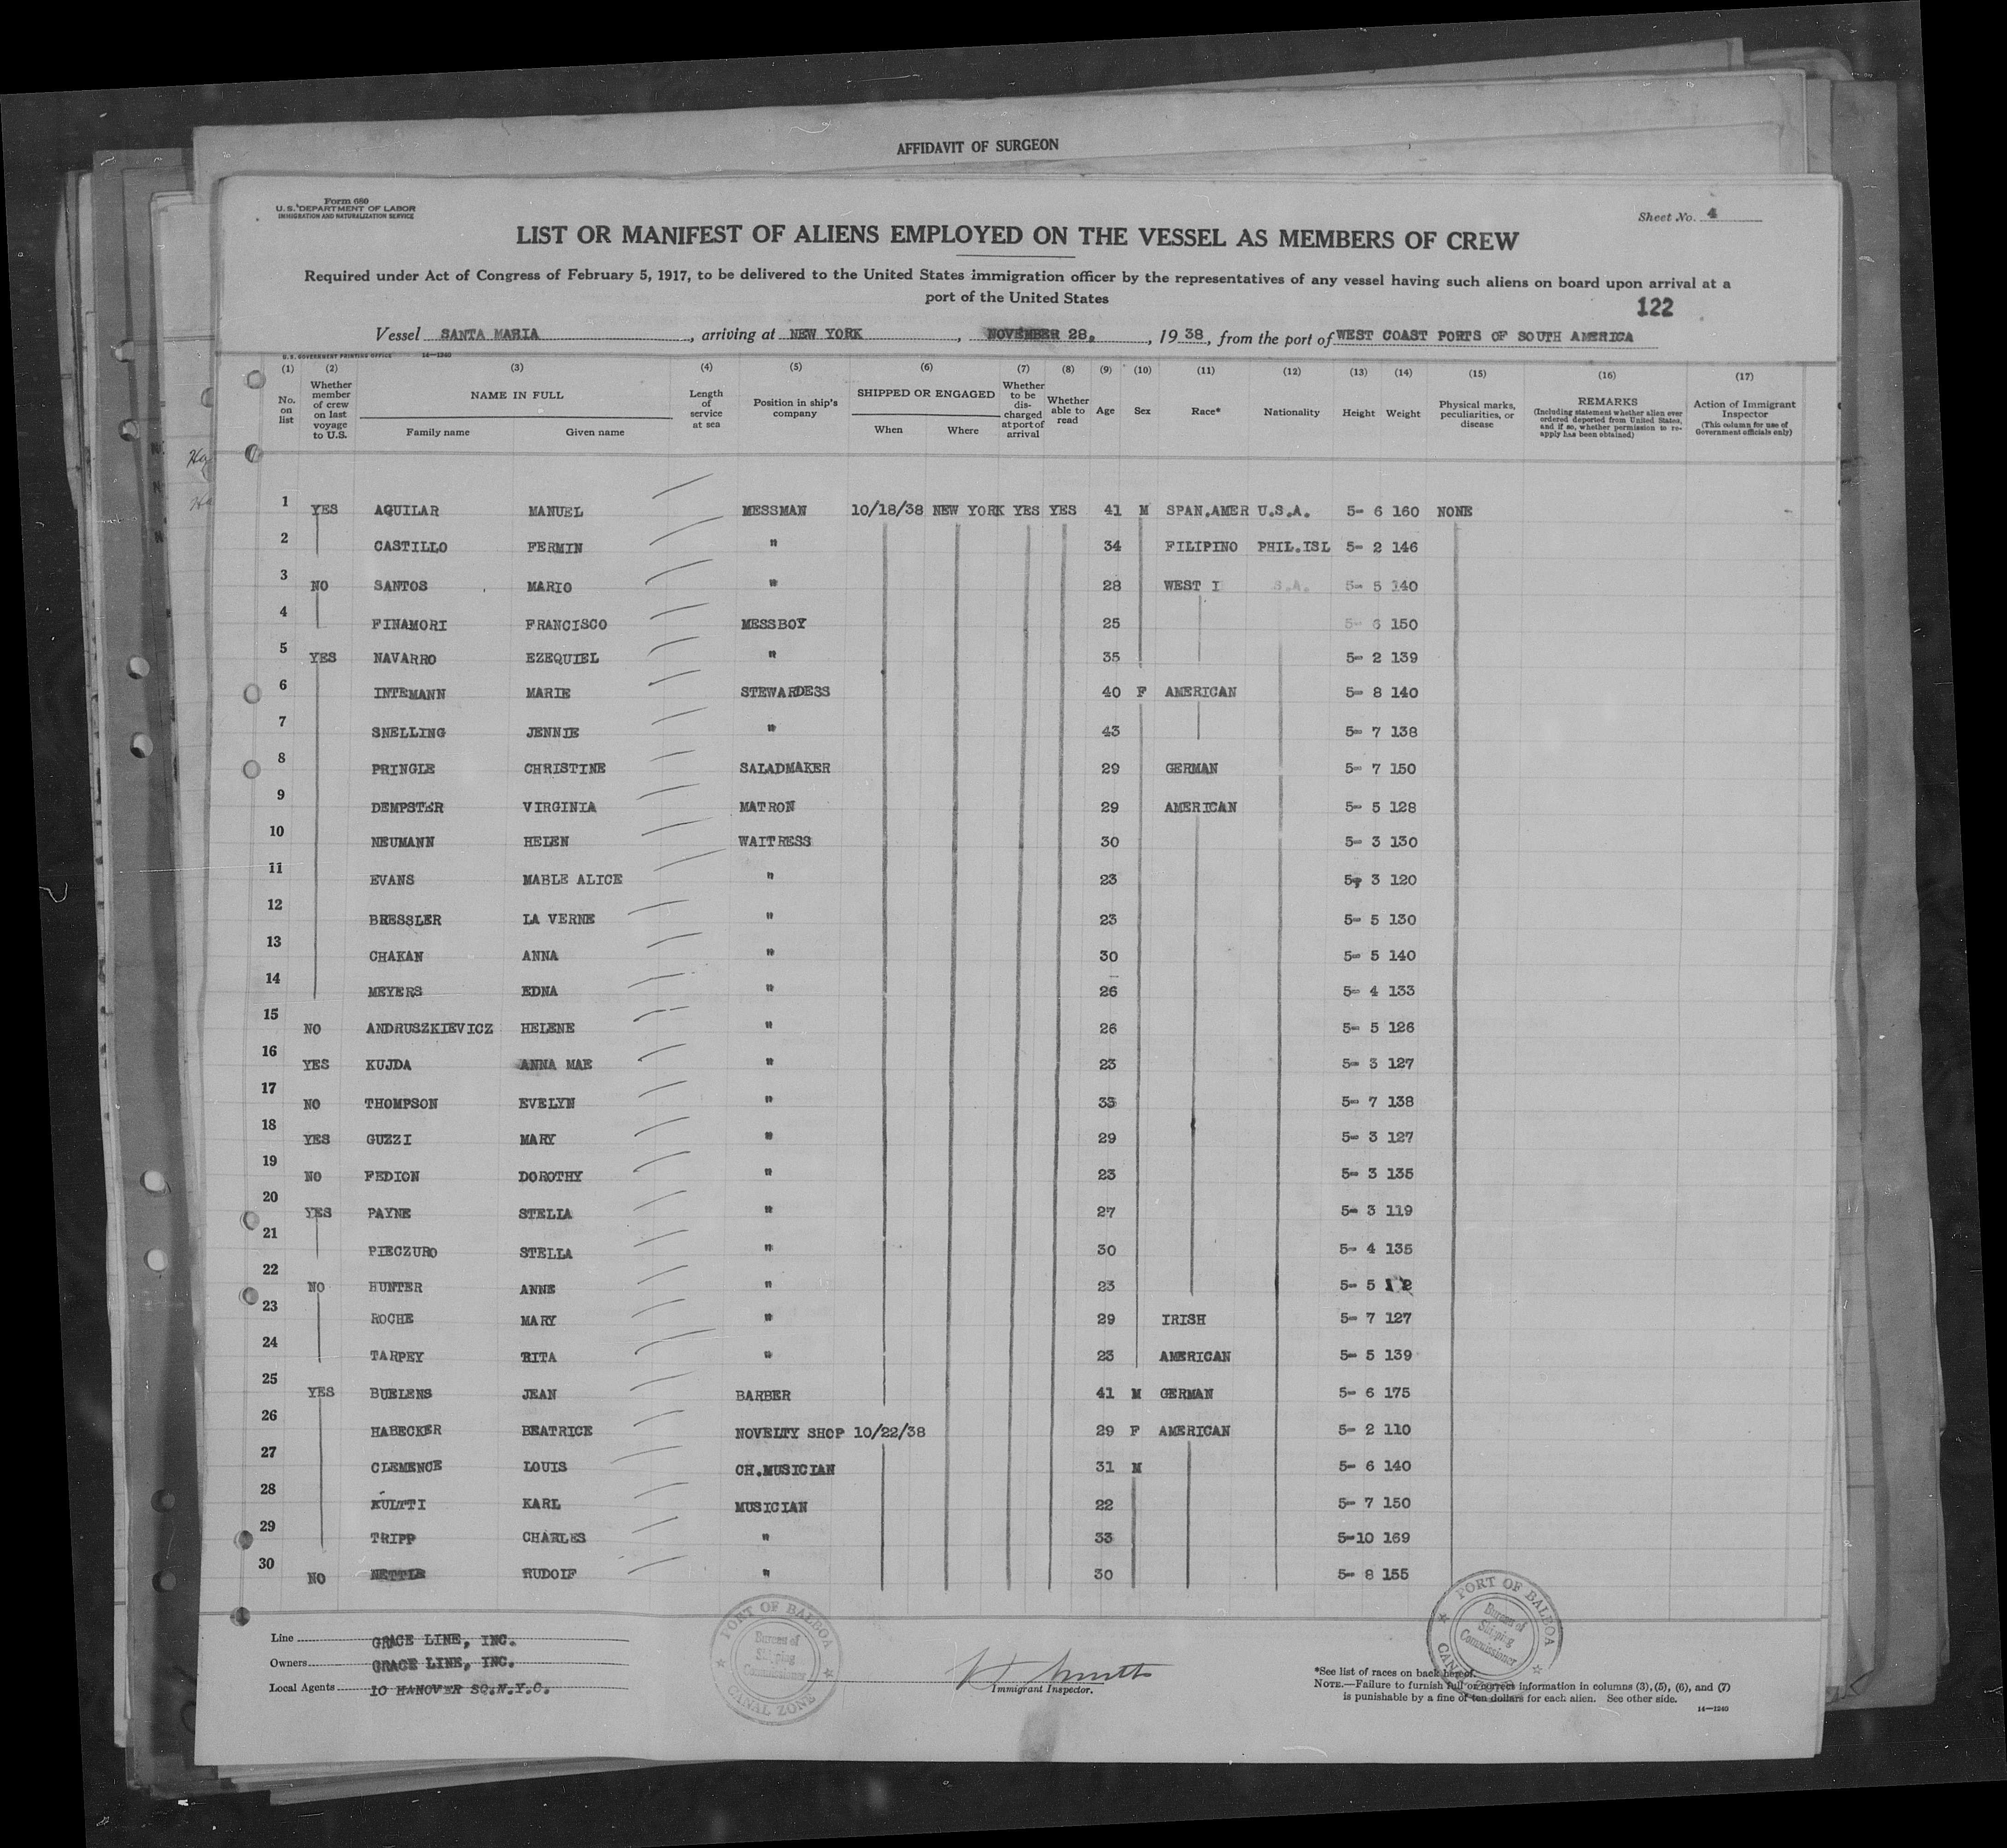 AFFIDAVIT OF SURGEON
Form 680
U. S. DEPARTMENT OF LABOR
IMMIGRATION AND NATURALIZATION SERVICE
Sheet No. 4
LIST OR MANIFEST OF ALIENS EMPLOYED ON THE VESSEL AS MEMBERS OF CREW
Required under Act of Congress of February 5, 1917, to be delivered to the United States immigration officer by the representatives of any vessel having such aliens on board upon arrival at a
port of the United States
122
Vessel SANTA MARIA, arriving at NEW YORK, NOVEMBER 28, 1938, from the port of WEST COAST PORTS OF SOUTH AMERICA
U. S. GOVERNMENT PRINTING OFFICE 14—1240
(1) (2) (3) (4) (5) (6) (7) (8) (9) (10) (11) (12) (13) (14) (15) (16) (17)
No. on list
Whether member of crew on last voyage to U.S.
NAME IN FULL
Family name Given name
Length of service at sea
Position in ship's company
SHIPPED OR ENGAGED
When Where
Whether to be discharged at port of arrival
Whether able to read
Age
Sex
Race*
Nationality
Height
Weight
Physical marks, peculiarities, or disease
REMARKS
(Including statement whether alien ever ordered deported from United States, and if so, whether permission to reapply has been obtained)
Action of Immigrant Inspector
(This column for use of Government officials only)
1 YES AQUILAR MANUEL MESSMAN 10/18/38 NEW YORK YES YES 41 M SPAN.AMER U.S.A. 5- 6 160 NONE
2 CASTILLO FERMIN " 34 FILIPINO PHIL.ISL 5- 2 146
3 NO SANTOS MARIO " 28 WEST I S.A. 5- 5 140
4 FINAMORI FRANCISCO MESSBOY 25 5- 6 150
5 YES NAVARRO EZEQUIEL " 35 5- 2 139
6 INTEMANN MARIE STEWARDESS 40 F AMERICAN 5- 8 140
7 SNELLING JENNIE " 43 5- 7 138
8 PRINGLE CHRISTINE SALADMAKER 29 GERMAN 5- 7 150
9 DEMPSTER VIRGINIA MATRON 29 AMERICAN 5- 5 128
10 NEUMANN HELEN WAITRESS 30 5- 3 130
11 EVANS MABLE ALICE " 23 5- 3 120
12 BRESSLER LA VERNE " 23 5- 5 130
13 CHAKAN ANNA " 30 5- 5 140
14 MEYERS EDNA " 26 5- 4 133
15 NO ANDRUSZKIEVICZ HELENE " 26 5- 5 126
16 YES KUJDA ANNA MAE " 23 5- 3 127
17 NO THOMPSON EVELYN " 33 5- 7 138
18 YES GUZZI MARY " 29 5- 3 127
19 NO FEDION DOROTHY " 23 5- 3 135
20 YES PAYNE STELLA " 27 5- 3 119
21 PIECZURO STELLA " 30 5- 4 135
22 NO HUNTER ANNE " 23 5- 5
23 ROCHE MARY " 29 IRISH 5- 7 127
24 TARPEY RITA " 23 AMERICAN 5- 5 139
25 YES BUELENS JEAN BARBER 41 M GERMAN 5- 6 175
26 HABECKER BEATRICE NOVELTY SHOP 10/22/38 29 F AMERICAN 5- 2 110
27 CLEMENCE LOUIS CH.MUSICIAN 31 M 5- 6 140
28 KULTTI KARL MUSICIAN 22 5- 7 150
29 TRIPP CHARLES " 33 5-10 169
30 NO RUDOLF " 30 5- 8 155
Line GRACE LINE, INC.
Owners GRACE LINE, INC.
Local Agents 10 HANOVER SQ.N.Y.C.
PORT OF BALBOA
Bureau of Shipping Commissioner
CANAL ZONE
Immigrant Inspector.
PORT OF BALBOA
Bureau of Shipping Commissioner
*See list of races on back hereof.
NOTE.—Failure to furnish full or correct information in columns (3), (5), (6), and (7)
is punishable by a fine of ten dollars for each alien. See other side.
14—1240